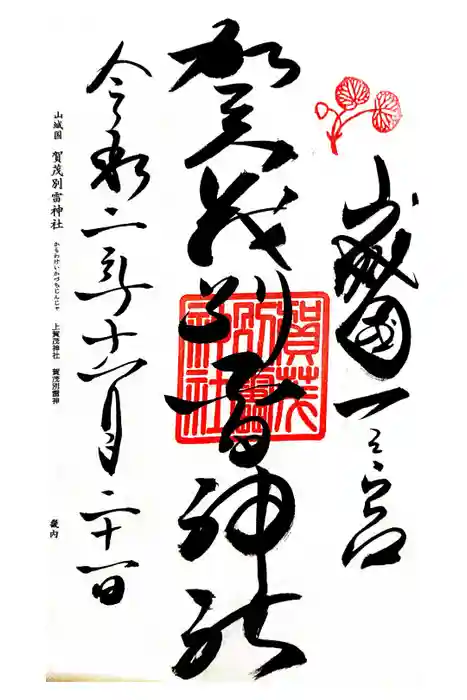 山城國一之宮
賀茂別雷神社
賀茂
別雷
神社
令和二年十一月二十一日
山城国 賀茂別雷神社 かもわけいかづちじんじゃ 上賀茂神社 賀茂別雷神
畿内